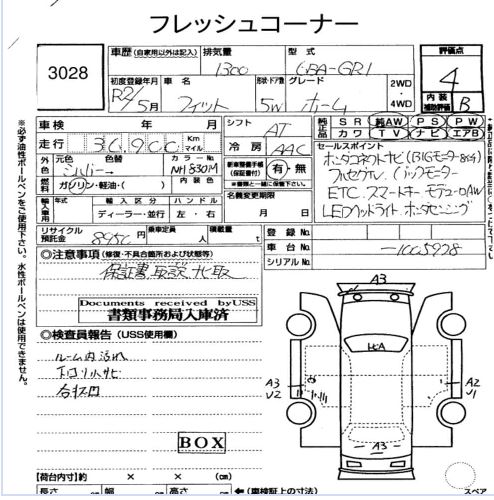 フレッシュコーナー
3028
車歴 (自家用以外は記入) 排気量 型式
1300 6BA-GR1
評価点
4
内装 補助評価 B
初度登録年月 車名 形状・ドア数 グレード
R2/5月 フィット 5W ホーム
2WD
4WD
※必ず油性ボールペンをご使用下さい。水性ボールペンは使用できません。
車検 年 月
走行 Km マイル
シフト AT
冷房 AAC
純正品 SR 純AW PS PW
カワ TV ナビ エアB
外色 元色 色替 カラーNo.
シルバー NH830M
燃料 ガソリン・軽油・( ) 内装色
新車整備手帳 (保証書付) 有・無
(書類と一緒に保管して下さい。)
セールスポイント
ホンダコネクトナビ
フルセグTV. バックモニター
ETC. スマートキー モデューロAW
LEDヘッドライト. ホンダセンシング
輸入車用 年式 輸入区分 ハンドル
ディーラー・並行 左・右
名義変更期限
月 日
リサイクル預託金 乗車定員 人 積載量 t
登録No.
車台No. -1005978
シリアルNo.
◎注意事項 (修復・不具合箇所および状態等)
保証書. 取説
Documents received byUSS
書類事務局入庫済
◎検査員報告 (USS使用欄)
ルーム内汚れ
下回りサビ
BOX
A3
A3
U2
A2
U1
A3
【荷台内寸】約 × × (cm)
長さ cm 幅 cm 高さ cm ←(車検証上の寸法)
スペア